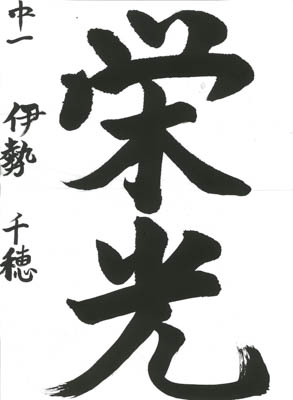 栄光
中一 伊勢 千穂